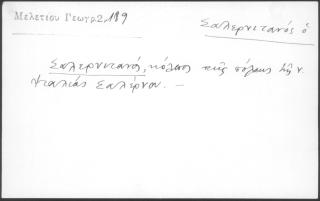 Μελετίου Γεωγρ. 2, 189
Σαλερνιτανός ὁ
Σαλερνιτανός, κόλπος τῆς πόλεως τῆς ν.
Ἰταλίας Σαλέρνου. —